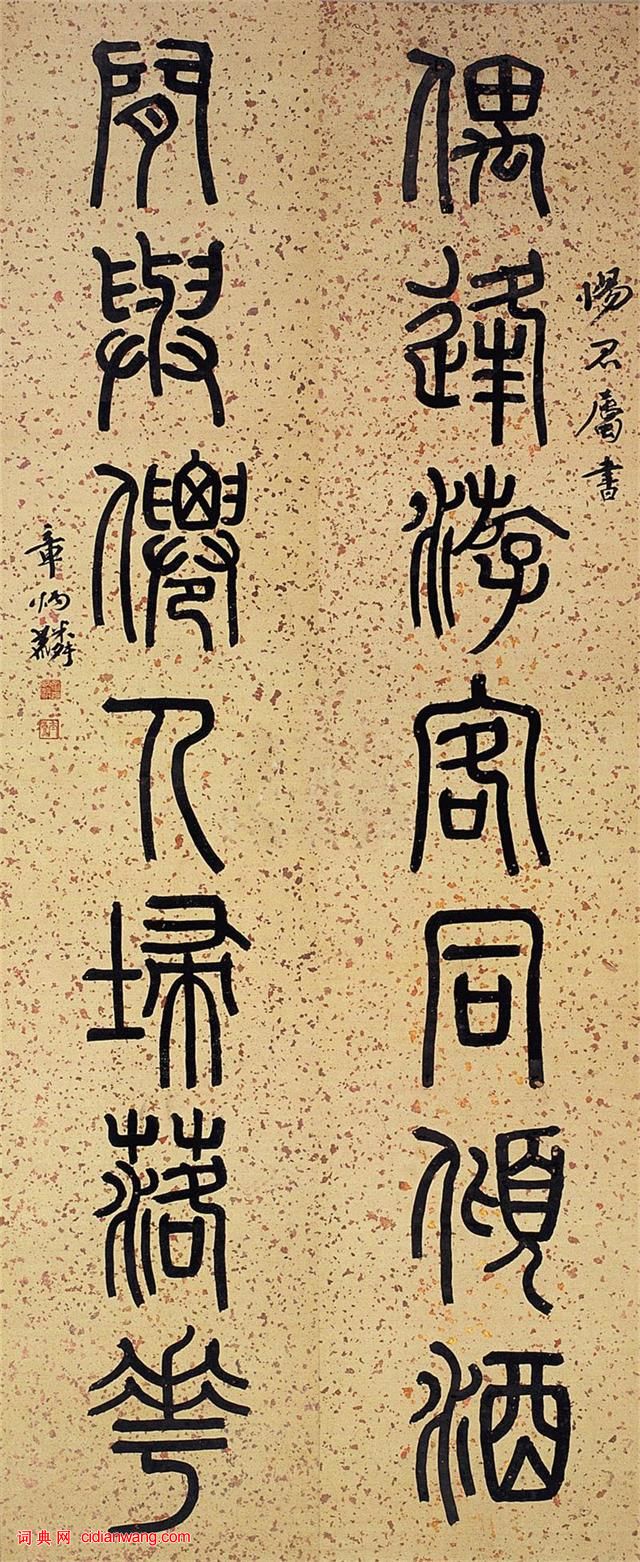 惕君屬書
偶逢游客同傾酒
閒與僊人掃落花
章炳麟
词典网 cidianwang.com